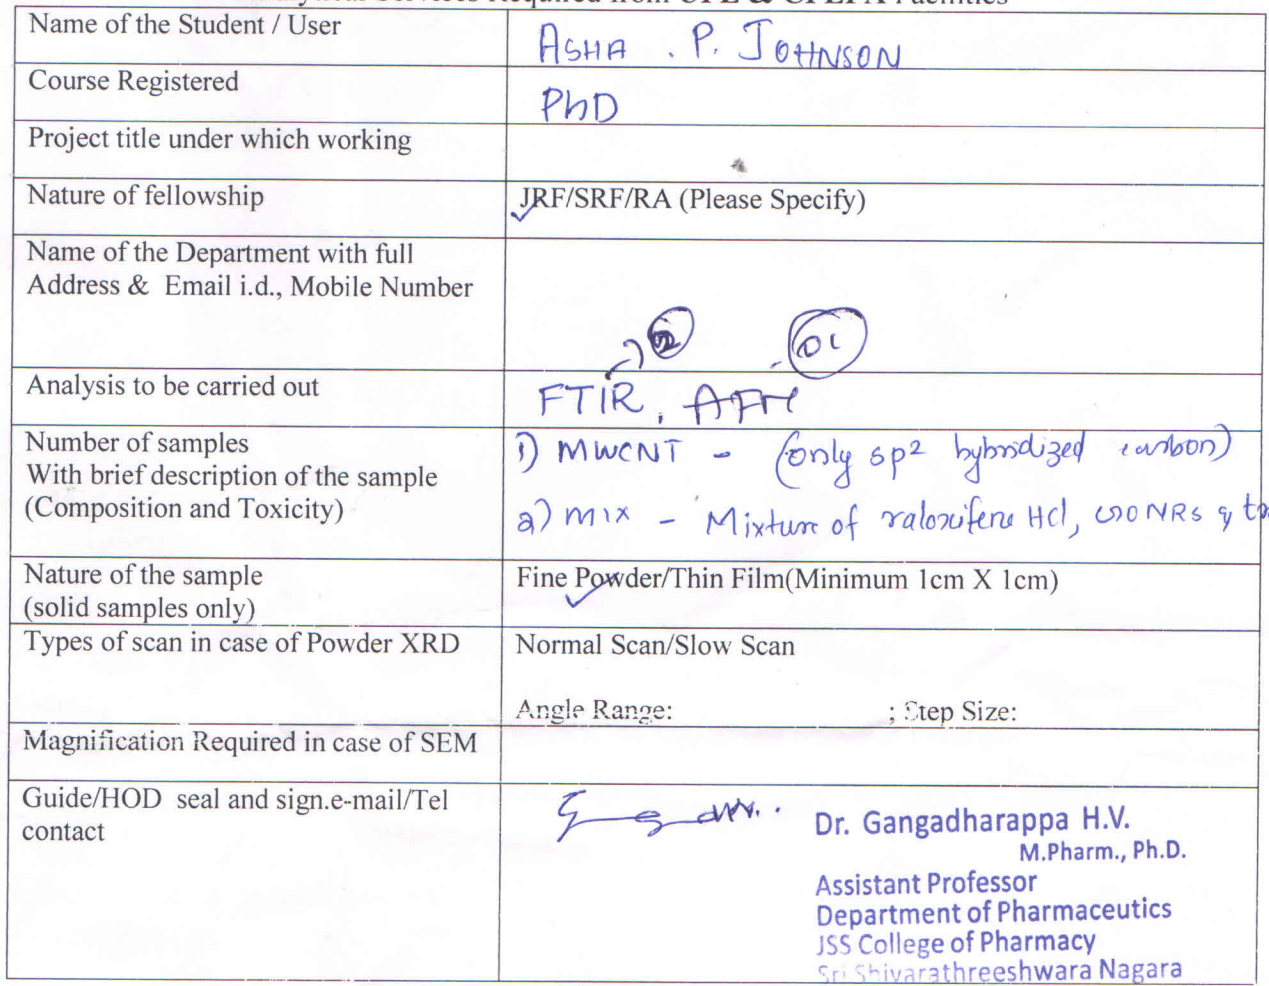 Analytical Services Required from UPE & CPEPA Facilities
Name of the Student / User
ASHA . P. JOHNSON
Course Registered
PhD
Project title under which working
Nature of fellowship
JRF/SRF/RA (Please Specify)
Name of the Department with full
Address & Email i.d., Mobile Number
01
Analysis to be carried out
FTIR, AFM
Number of samples
With brief description of the sample
(Composition and Toxicity)
1) MWCNT - (only sp2 hybridized carbon)
2) mix - Mixture of raloxifene HCl,
Nature of the sample
(solid samples only)
Fine Powder/Thin Film(Minimum 1cm X 1cm)
Types of scan in case of Powder XRD
Normal Scan/Slow Scan
Angle Range: ; Step Size:
Magnification Required in case of SEM
Guide/HOD seal and sign.e-mail/Tel
contact
Dr. Gangadharappa H.V.
M.Pharm., Ph.D.
Assistant Professor
Department of Pharmaceutics
JSS College of Pharmacy
Sri Shivarathreeshwara Nagara